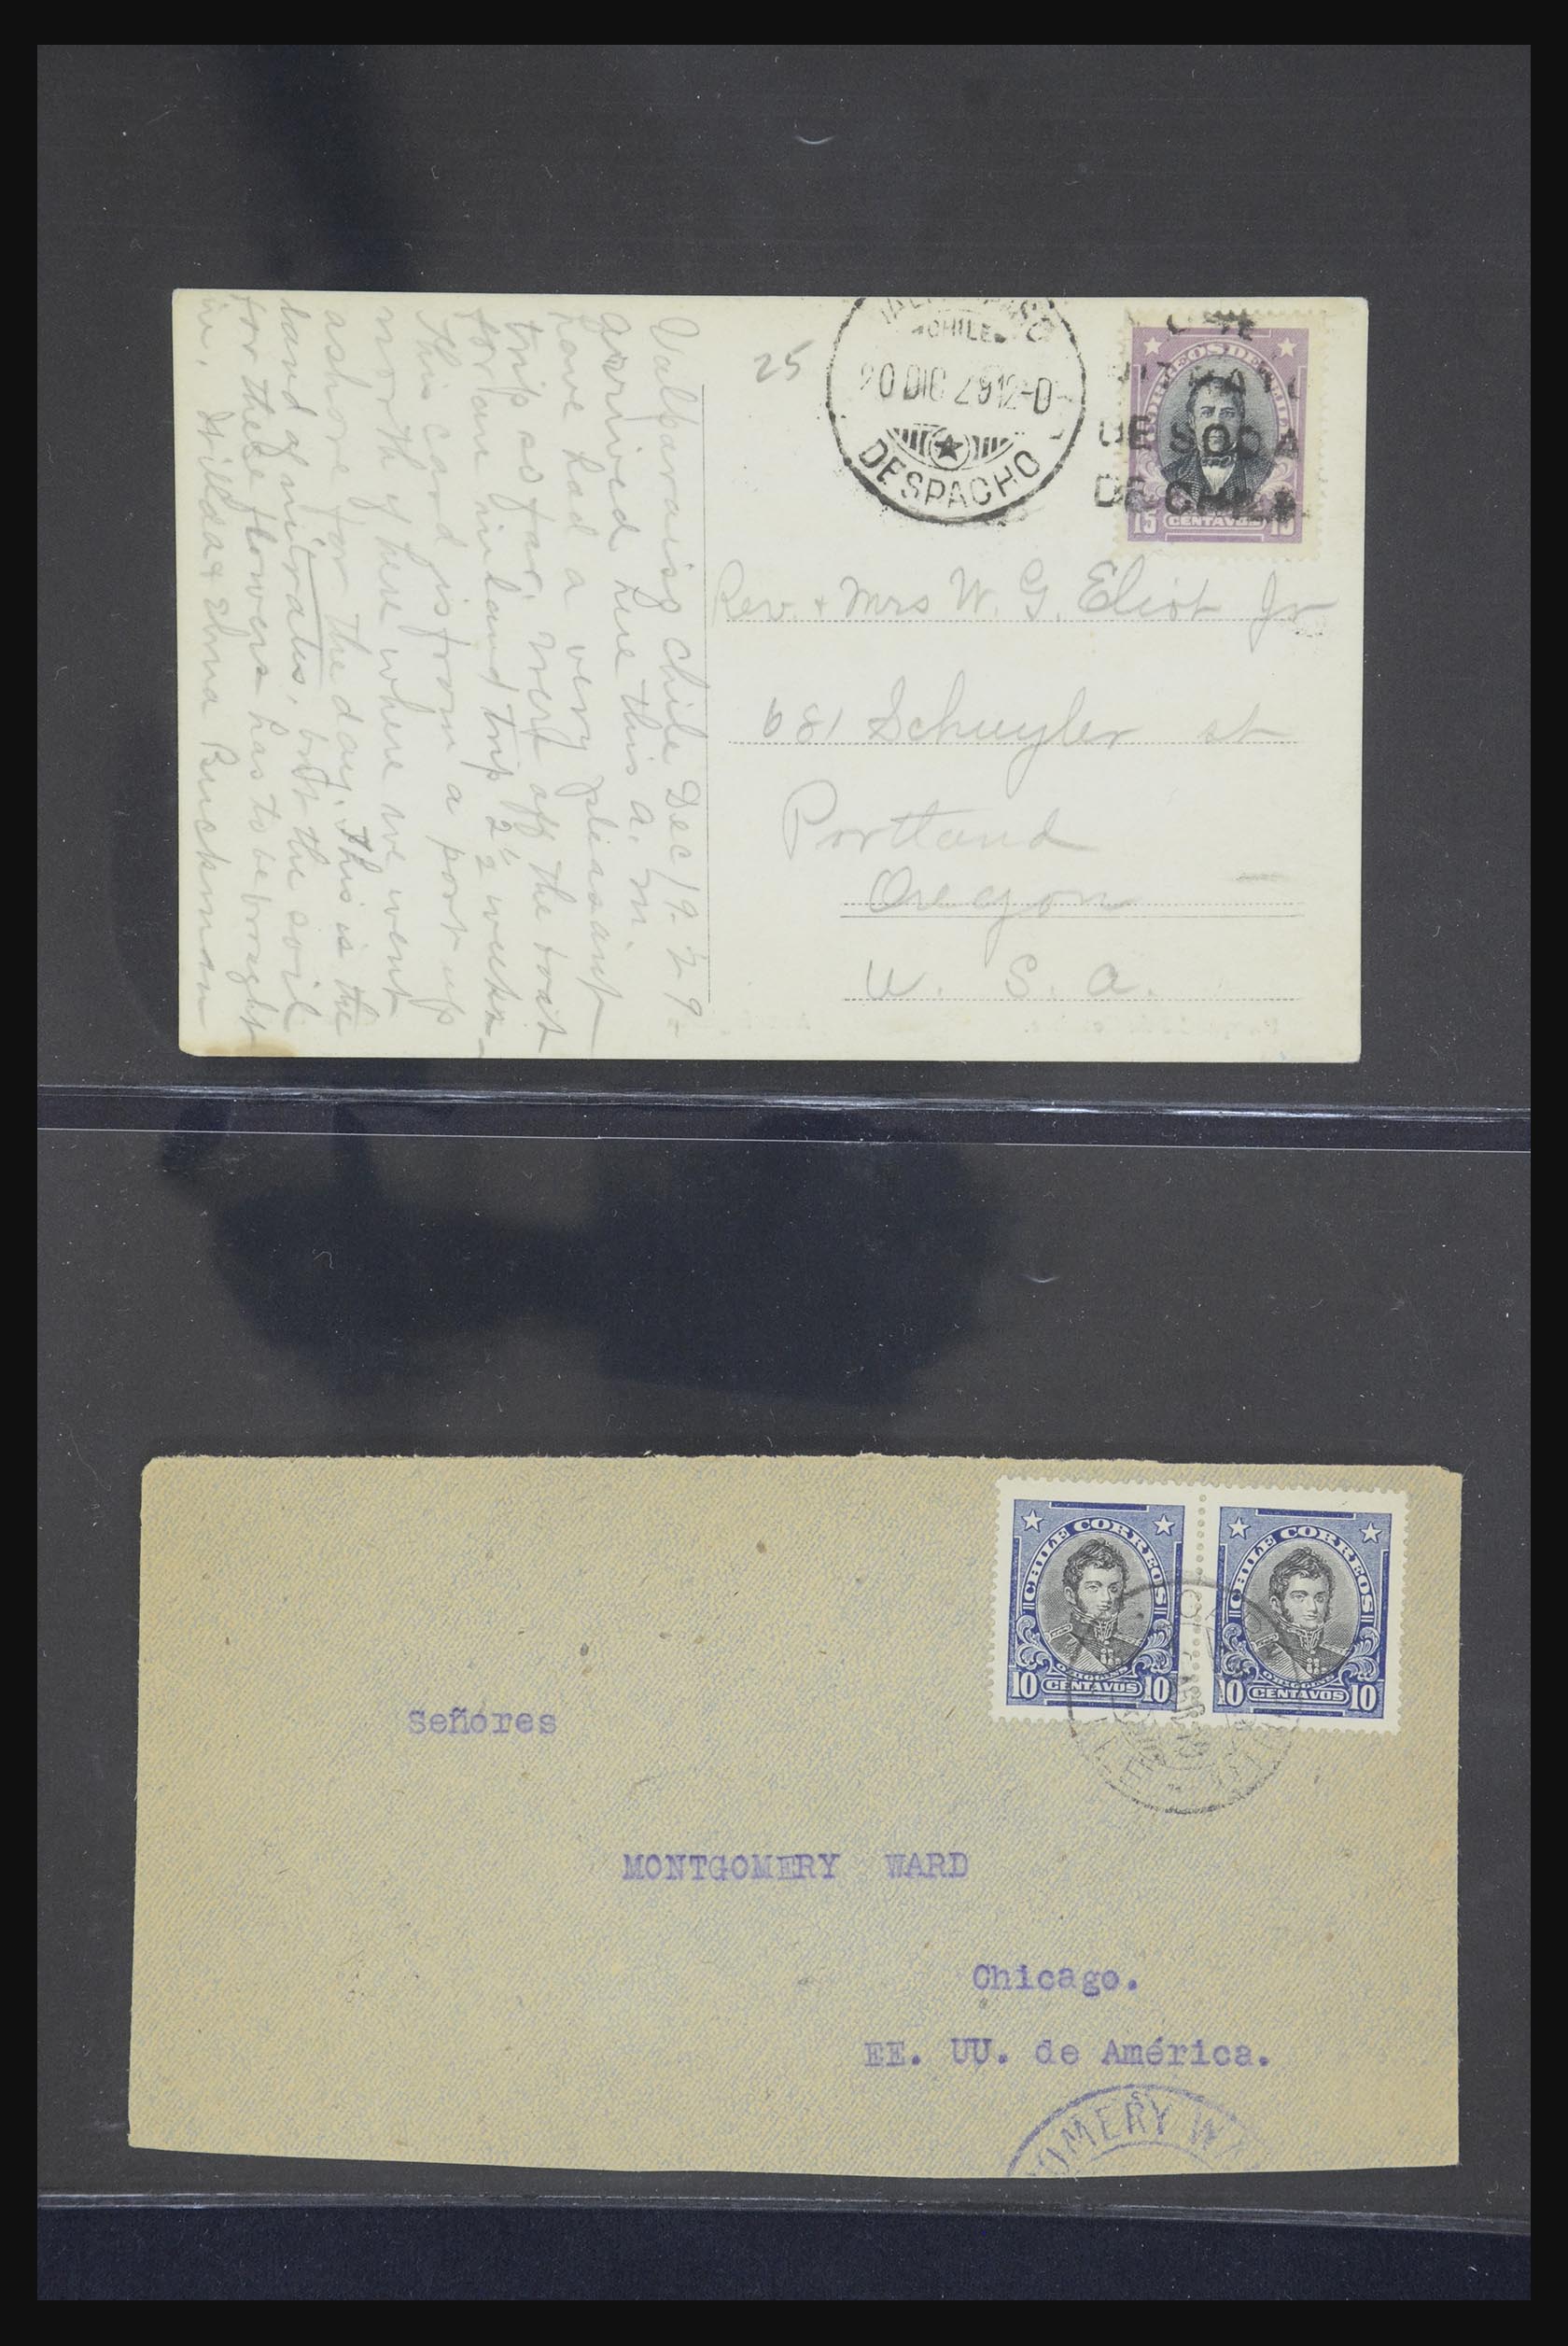 Valparaiso Chile Dec 19-29-
arrived here this a.m.
have had a very pleasant
trip so far, were off the boat
for an inland trip 2 1/2 weeks.
This card is from a port up
north of here where we went
ashore for the day. This is the
land of nitrates, but the soil
for these flowers has to be brought
in. Hilda & Edna Buckman
25
CHILE
20 DIC 2912-D
DESPACHO
DE SODA
DE CHILE
CORREOS DE CHILE
15 CENTAVOS 15
Rev. & Mrs W. G. Eliot Jr
681 Schuyler st
Portland
Oregon
U. S. A.
CHILE CORREOS
O'HIGGINS
10 CENTAVOS 10
CHILE CORREOS
O'HIGGINS
10 CENTAVOS 10
Señores
MONTGOMERY WARD
Chicago.
EE. UU. de América.
OMERY WA